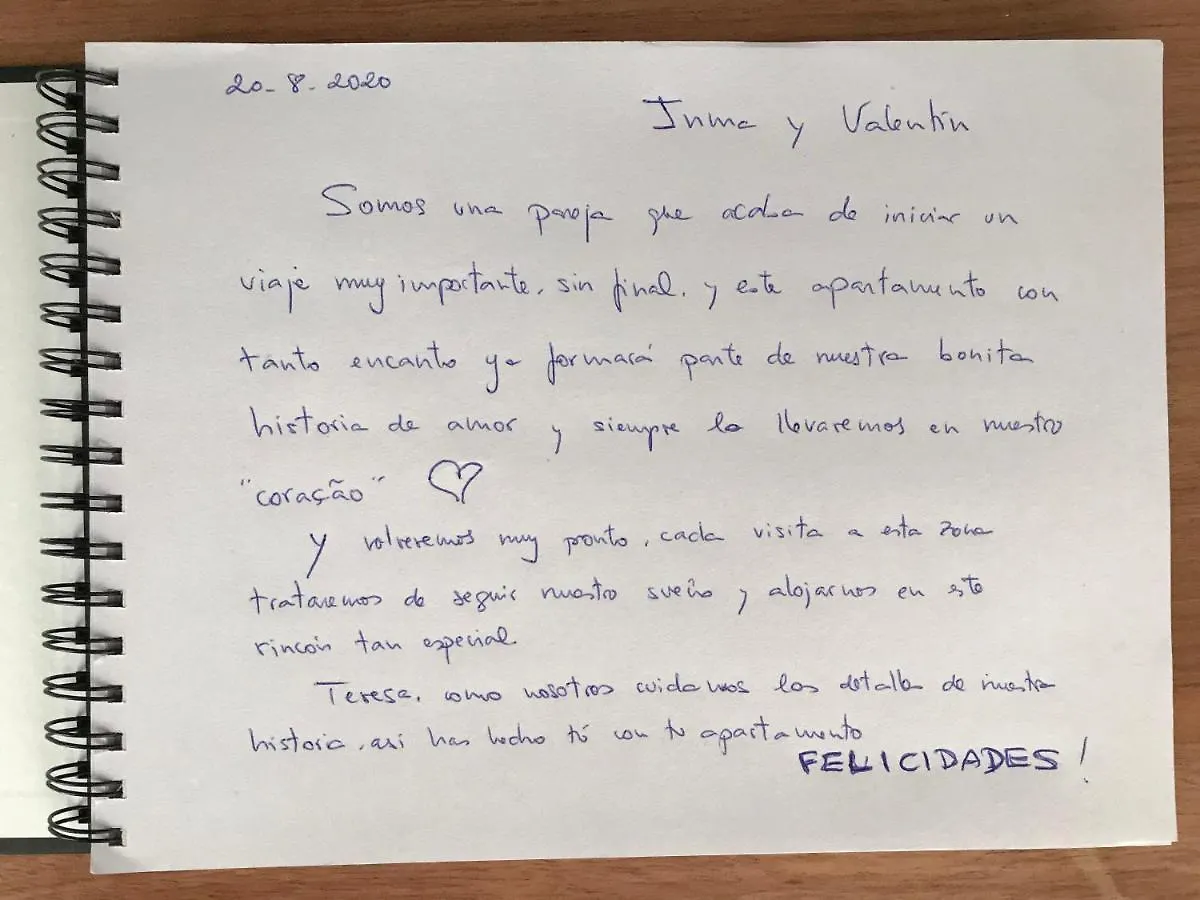 20-8-2020
Inma y Valentín
Somos una pareja que acaba de iniciar un
viaje muy importante, sin final, y este apartamento con
tanto encanto ya formará parte de nuestra bonita
historia de amor y siempre lo llevaremos en nuestro
"coração" ♡
Y volveremos muy pronto, cada visita a esta zona
trataremos de seguir nuestro sueño y alojarnos en este
rincón tan especial.
Teresa, como nosotros cuidamos los detalles de nuestra
historia, así has hecho tú con tu apartamento
FELICIDADES!